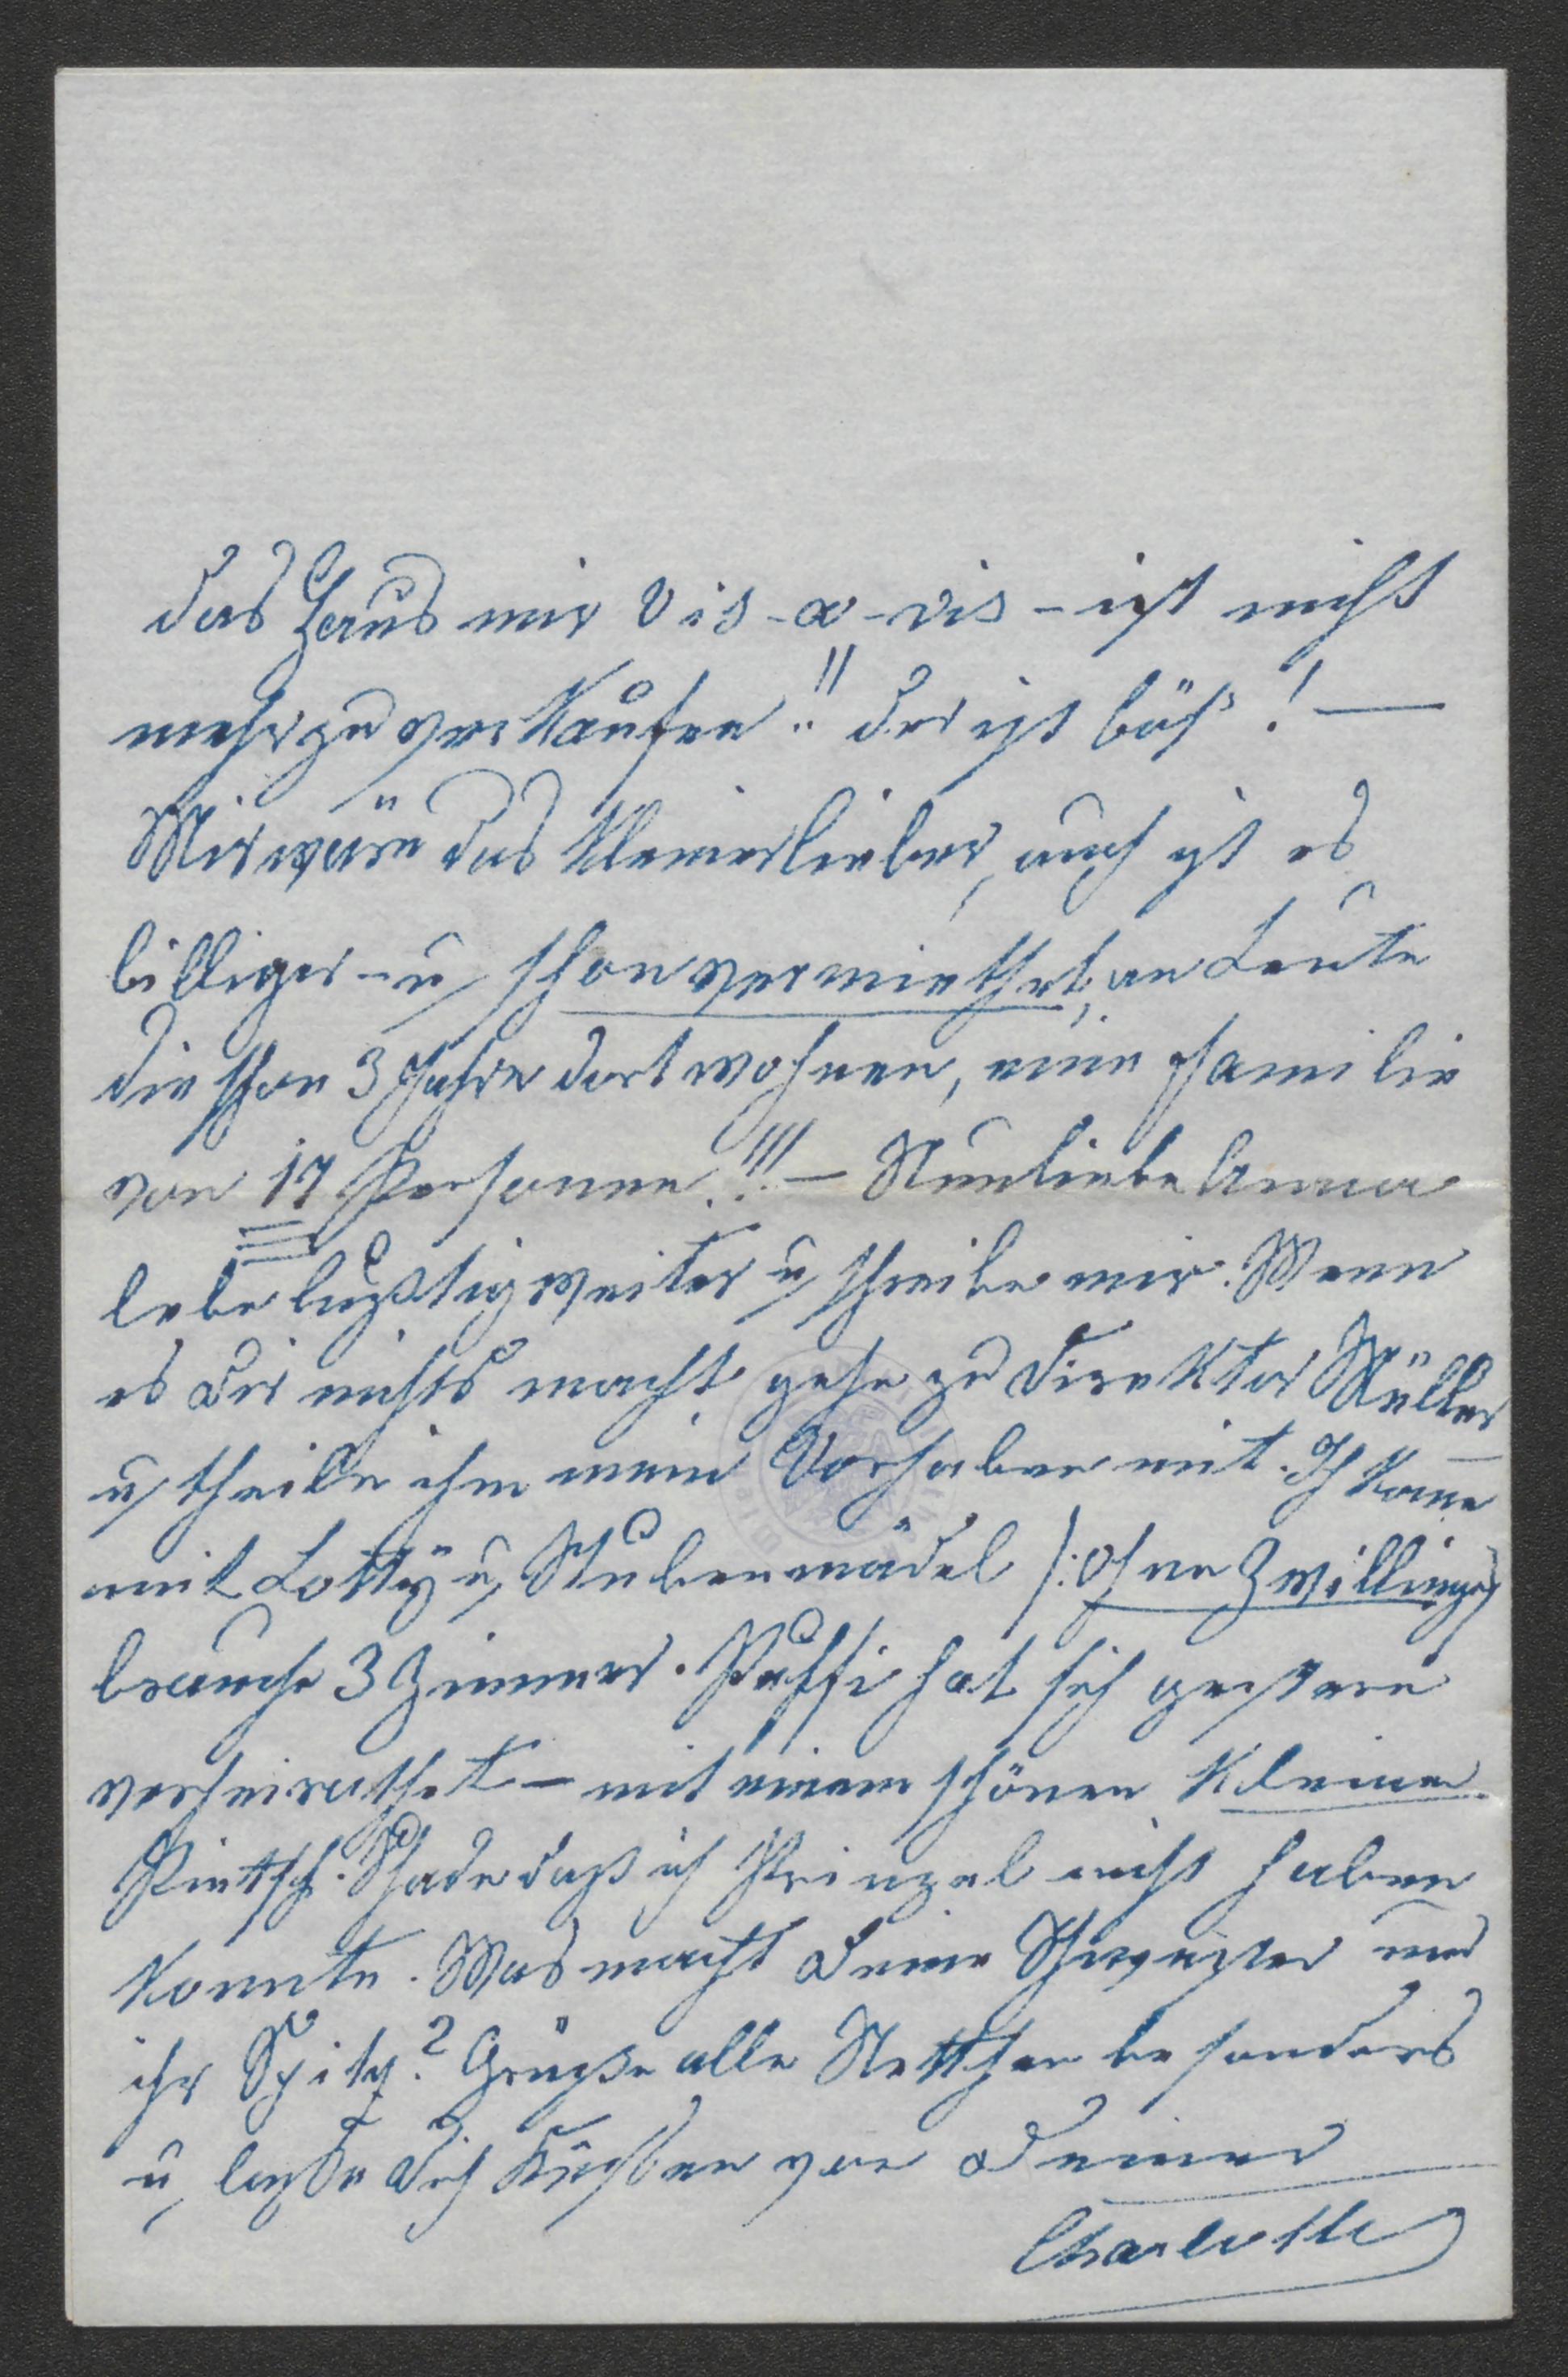 das Haus mir vis-a-vis - ist nicht
mehr zu verkaufen!! der ist böß! —
Mir wäre das kleiner lieber, auch ist es
billiger - u. schon vermiethet, an Leute
die schon 3 Jahre dort wohnen, eine Familie
von 17 Personen!!! — Nun liebe Anna
lebe lußtig weiter u. schreibe mir. Wenn
es dir nichts macht gehe zu Direktor Müller
u. theile ihm mein Vorhaben mit. Ich kom̅e
mit Lotty u. Stubenmädel /: ohne Zwillinge)
brauche 3 Zimmer. Puffi hat sich gestern
verheirathet - mit einem schönen kleinen
Pintsch. Schade daß ich Prinzel nicht haben
konnte. Was macht deine Schwester und
ihr Spitz? Grüße alle Netthen besonders
u. laße dich küßen von deiner
Charlotte